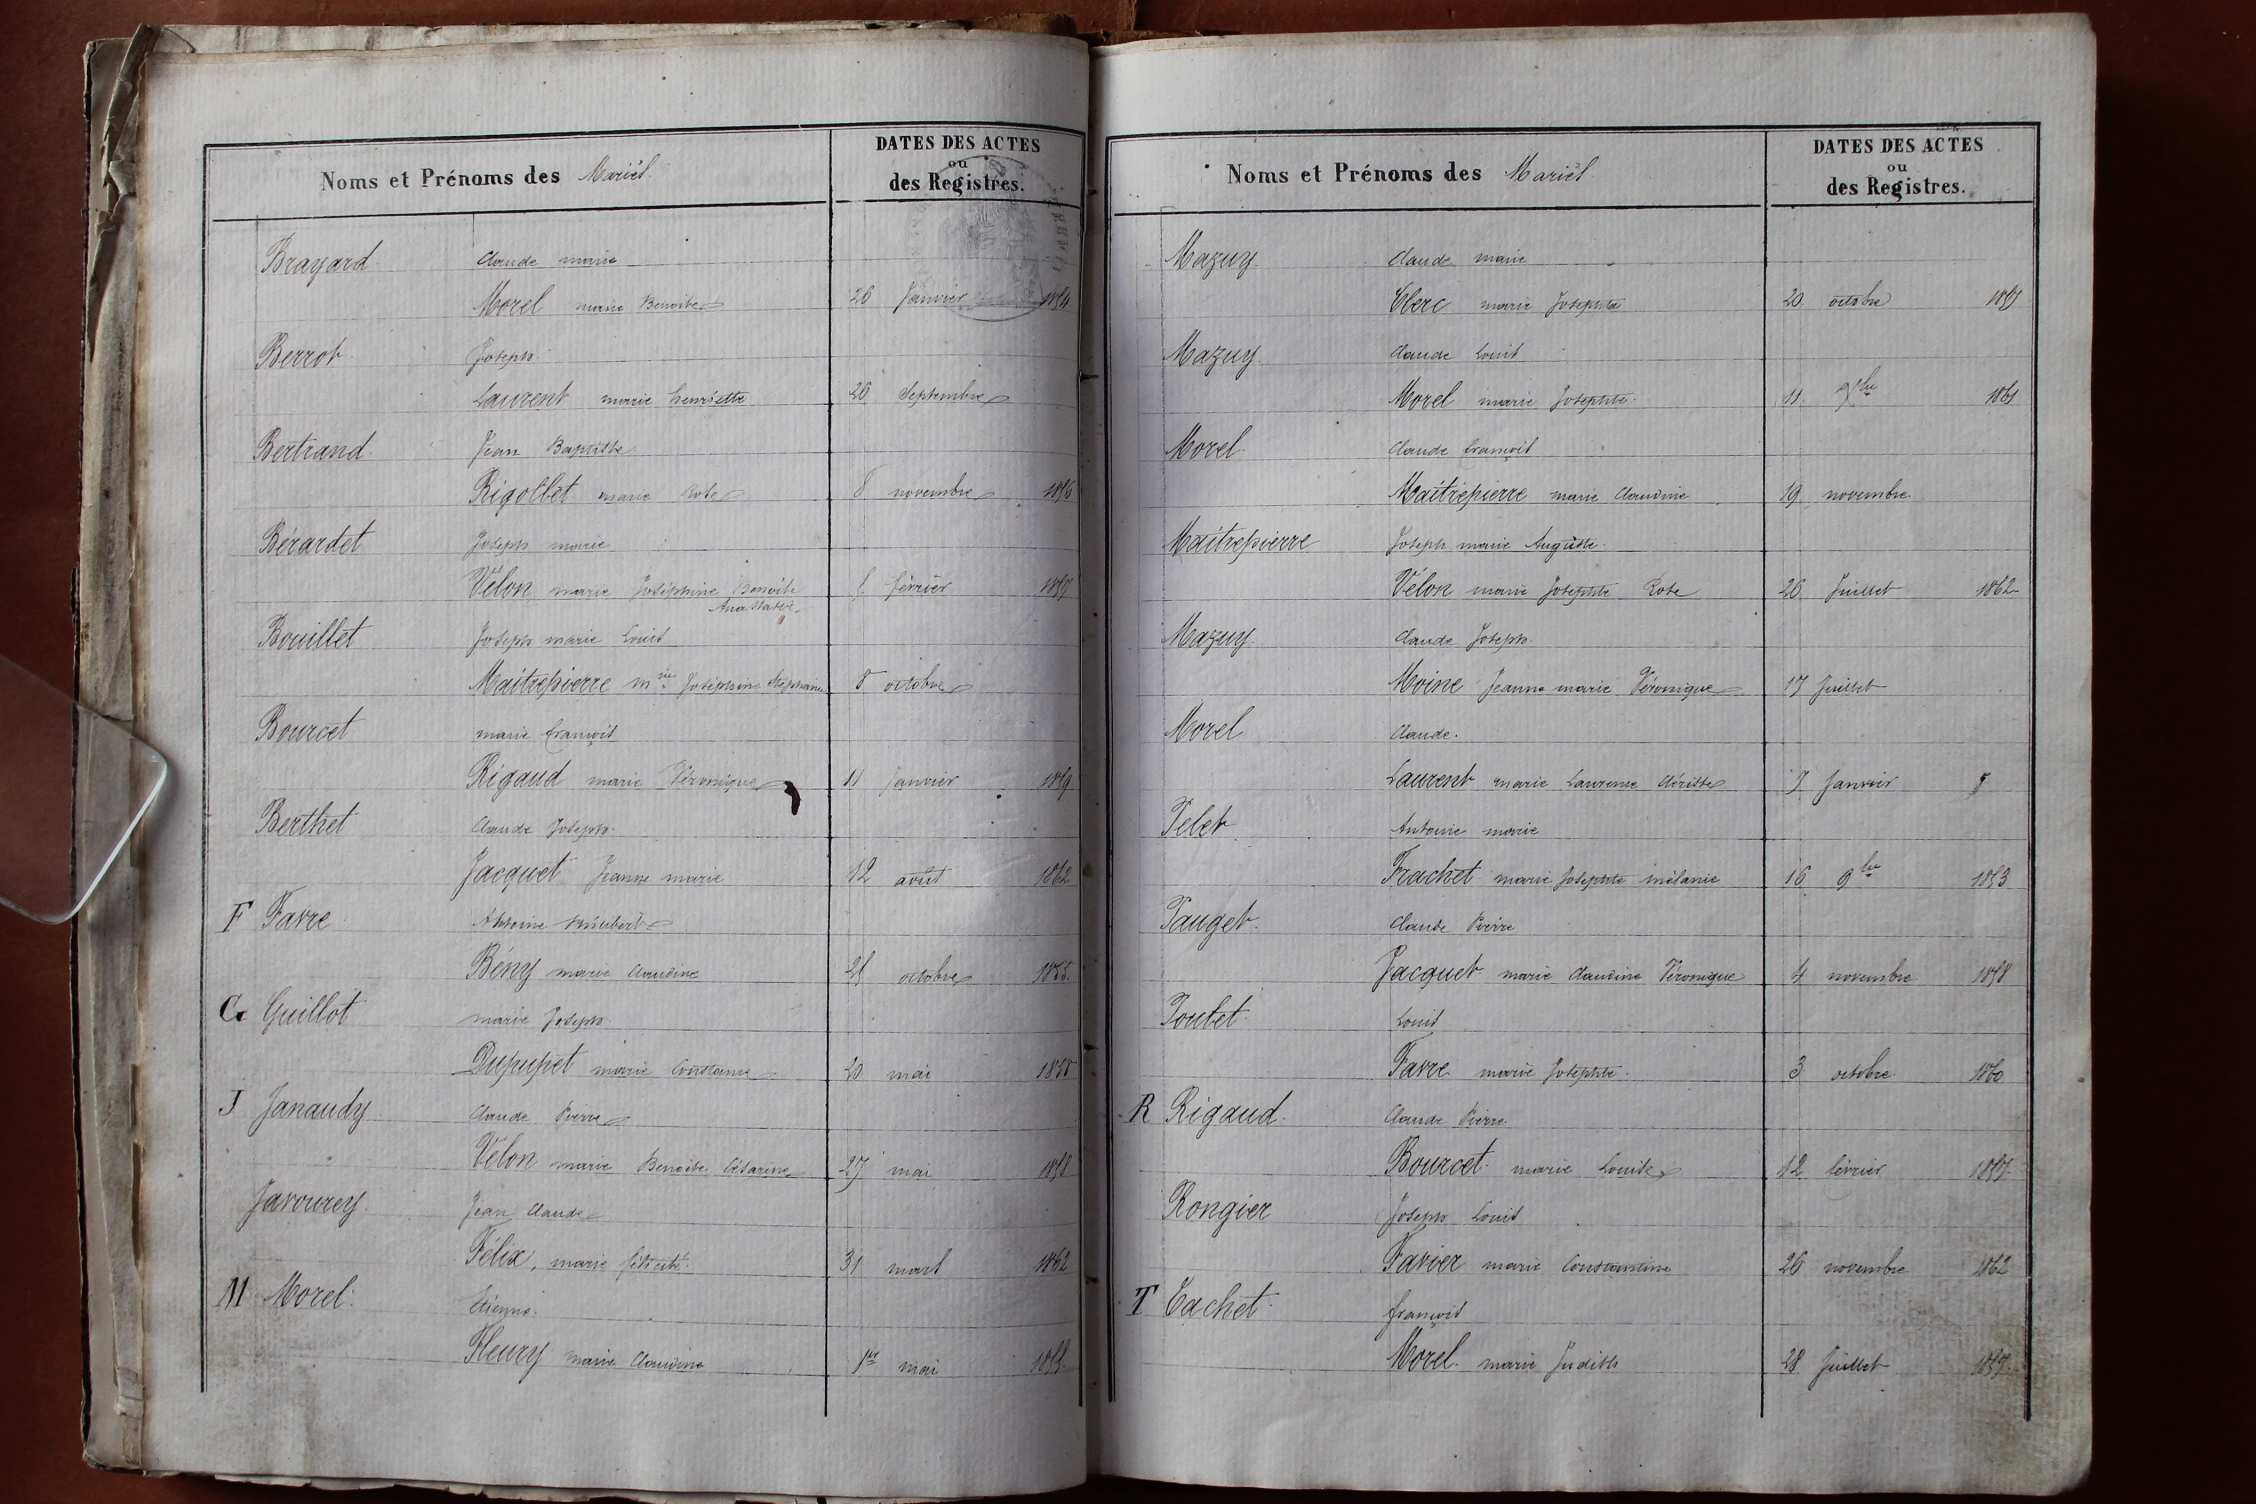 Noms et Prénoms des Mariés.
DATES DES ACTES
ou
des Registres.
Brayard Claude marie
Morel marie Benoite 26 Janvier 1854
Berrot Joseph
Laurent marie henriette 26 Septembre
Bertrand Jean Baptiste
Rigollet marie Rose 8 novembre 1856
Bérardet Joseph marie
Vélon marie Joséphine Benoite février 1857
Anastasie
Bouillet Joseph marie Louis
Maitrepierre mie Joséphine Stéphanie 8 octobre
Bourcet marie françois
Rigaud marie Véronique 11 Janvier 1859
Berthet Claude Joseph
Jacquet Jeanne marie 12 août 1862
F Favre Antoine Philibert
Bény marie Claudine octobre 1855
G Guillot marie Joseph
Dupupet marie Constance 20 mai 1855
J Janaudy Claude Pierre
Vélon marie Benoite Césarine 27 mai 1858
Javourey Jean Claude
Félix, marie félicité 31 mars 1862
M Morel Etienne
Fleury marie Claudine 1er mai
Noms et Prénoms des Mariés
DATES DES ACTES
ou
des Registres.
Mazuy Claude marie
Clerc marie Josephte 20 octobre
Mazuy Claude Louis
Morel marie Josephte 11 9bre 1861
Morel Claude françois
Maitrepierre marie Claudine 19 novembre
Maitrepierre Joseph marie Auguste
Vélon marie Josephte Rose 26 Juillet 1862
Mazuy Claude Joseph
Moine Jeanne marie Véronique 17 Juillet
Morel Claude
Laurent marie Laurence 7 Janvier
Pelet Antoine marie
Frachet marie Josephte mélanie 16 9bre 1853
Pauget Claude Pierre
Jacquet marie Claudine Véronique 4 novembre 1858
Poulet Louis
Favre marie Josephte 3 octobre 1860
R Rigaud Claude Pierre
Bourcet marie Louise 12 février
Rongier Joseph Louis
Favier marie Constantine 26 novembre 1862
T Tachet françois
Morel marie Judith 28 Juillet 1857